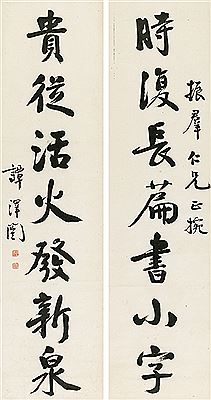 振群仁兄正挽
時復長篇書小字
貴從活火發新泉
譚澤闓